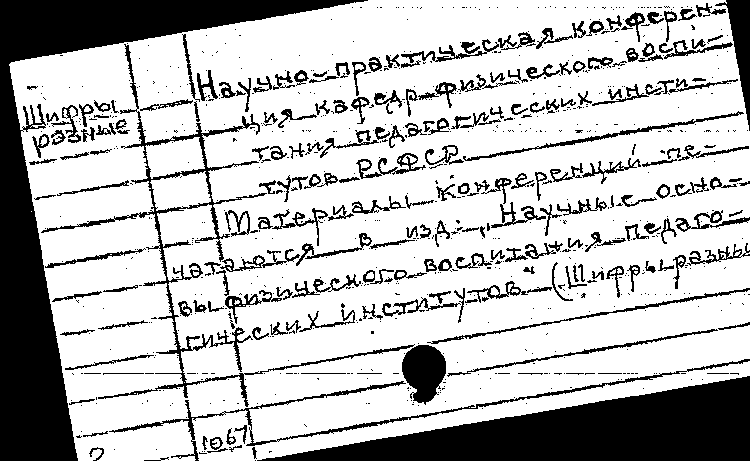 Шифры
разные
Научно-практическая конферен-
ция кафедр физического воспи-
тания педагогических инсти-
тутов РСФСР.
Материалы конференций пе-
чатаются в изд.: „Научные осно-
вы физического воспитания педаго-
гических институтов“ (Шифры разны
1067
2